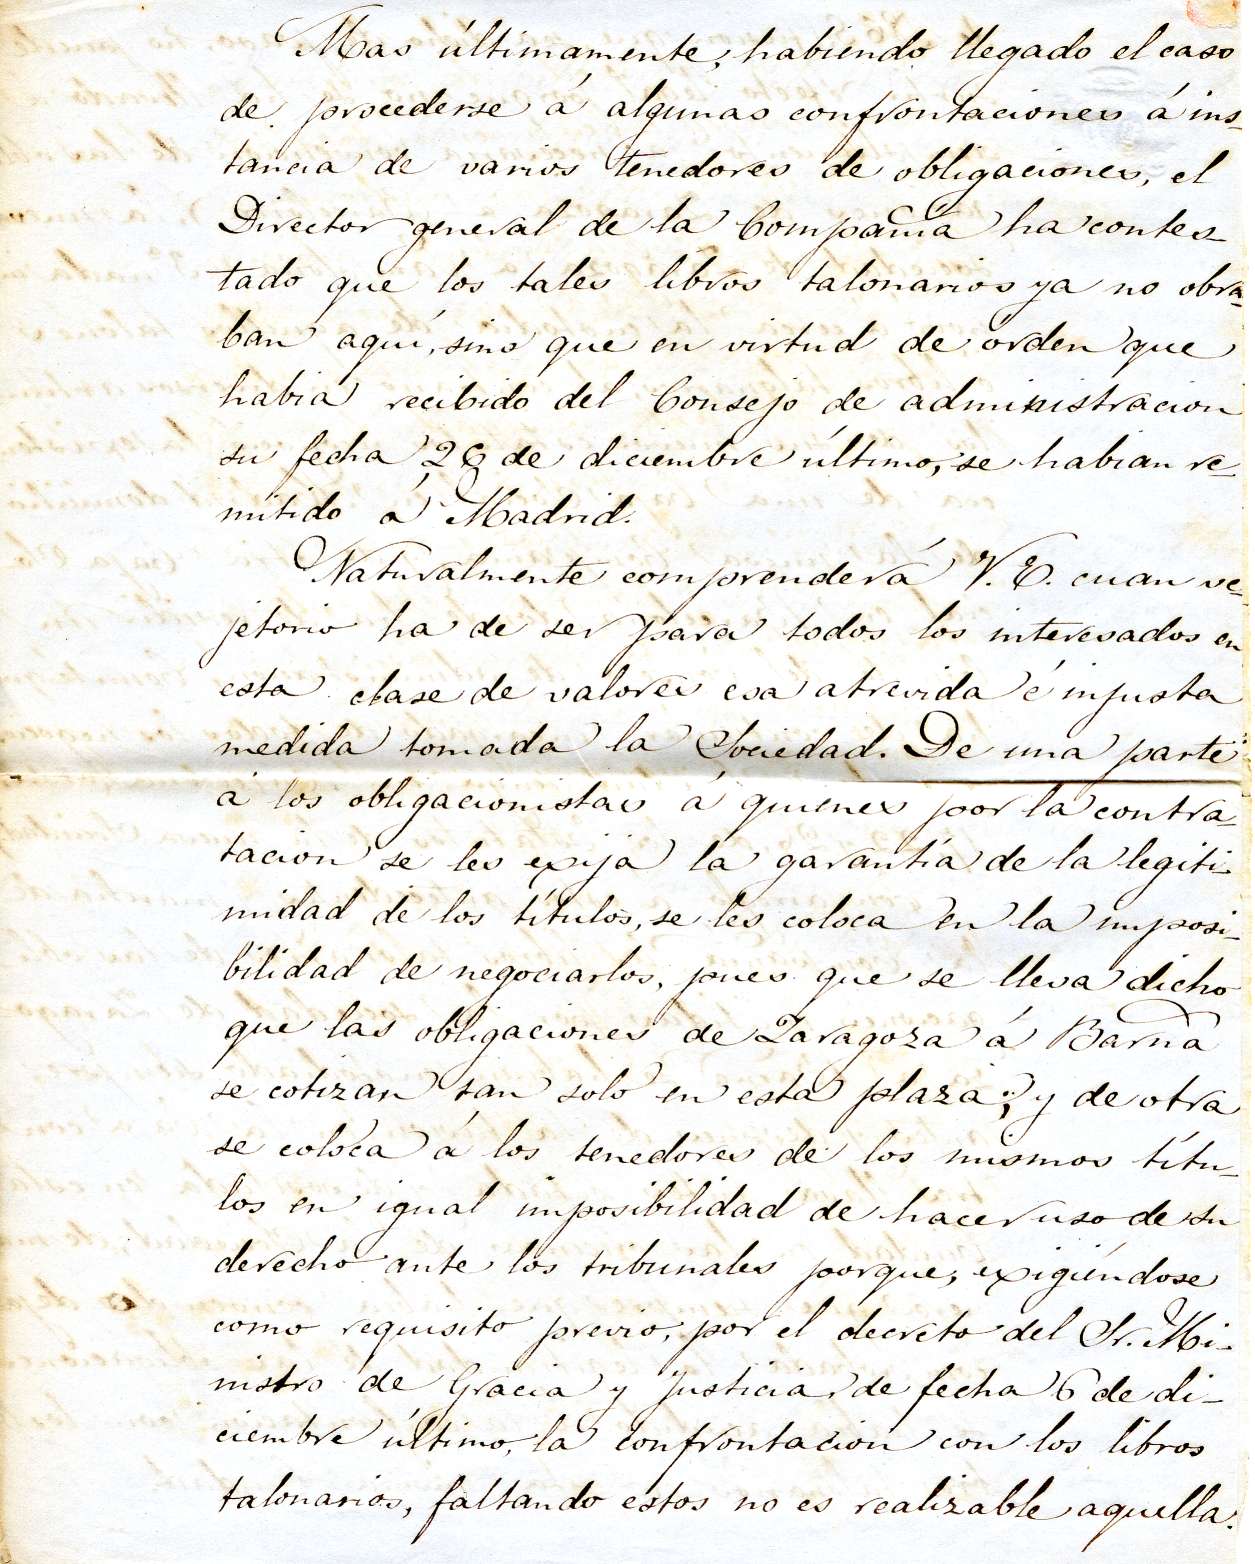 Mas últimamente, habiendo llegado el caso
de procederse á algunas confrontaciones á ins-
tancia de varios tenedores de obligaciones, el
Director general de la Compañía ha contes-
tado que los tales libros talonarios ya no obra-
ban aquí, sino que en virtud de órden que
habia recibido del Consejo de administracion
su fecha 26 de diciembre último, se habian re-
mitido á Madrid.
Naturalmente comprenderá V. E. cuan ve-
jetorio ha de ser para todos los interesados en
esta clase de valores esa atrevida é injusta
medida tomada la Sociedad. De una parte
á los obligacionistas á quienes por la contra-
tacion se les exija la garantía de la legiti-
midad de los títulos, se les coloca en la imposi-
bilidad de negociarlos, pues que se lleva dicho
que las obligaciones de Zaragoza á Barna
se cotizan tan solo en esta plaza; y de otra
se coloca á los tenedores de los mismos títu-
los en igual imposibilidad de hacer uso de su
derecho ante los tribunales porque, exigiéndose
como requisito previo, por el decreto del Sr. Mi-
nistro de Gracia y Justicia, de fecha 6 de di-
ciembre último, la confrontacion con los libros
talonarios, faltando estos no es realizable aquella.